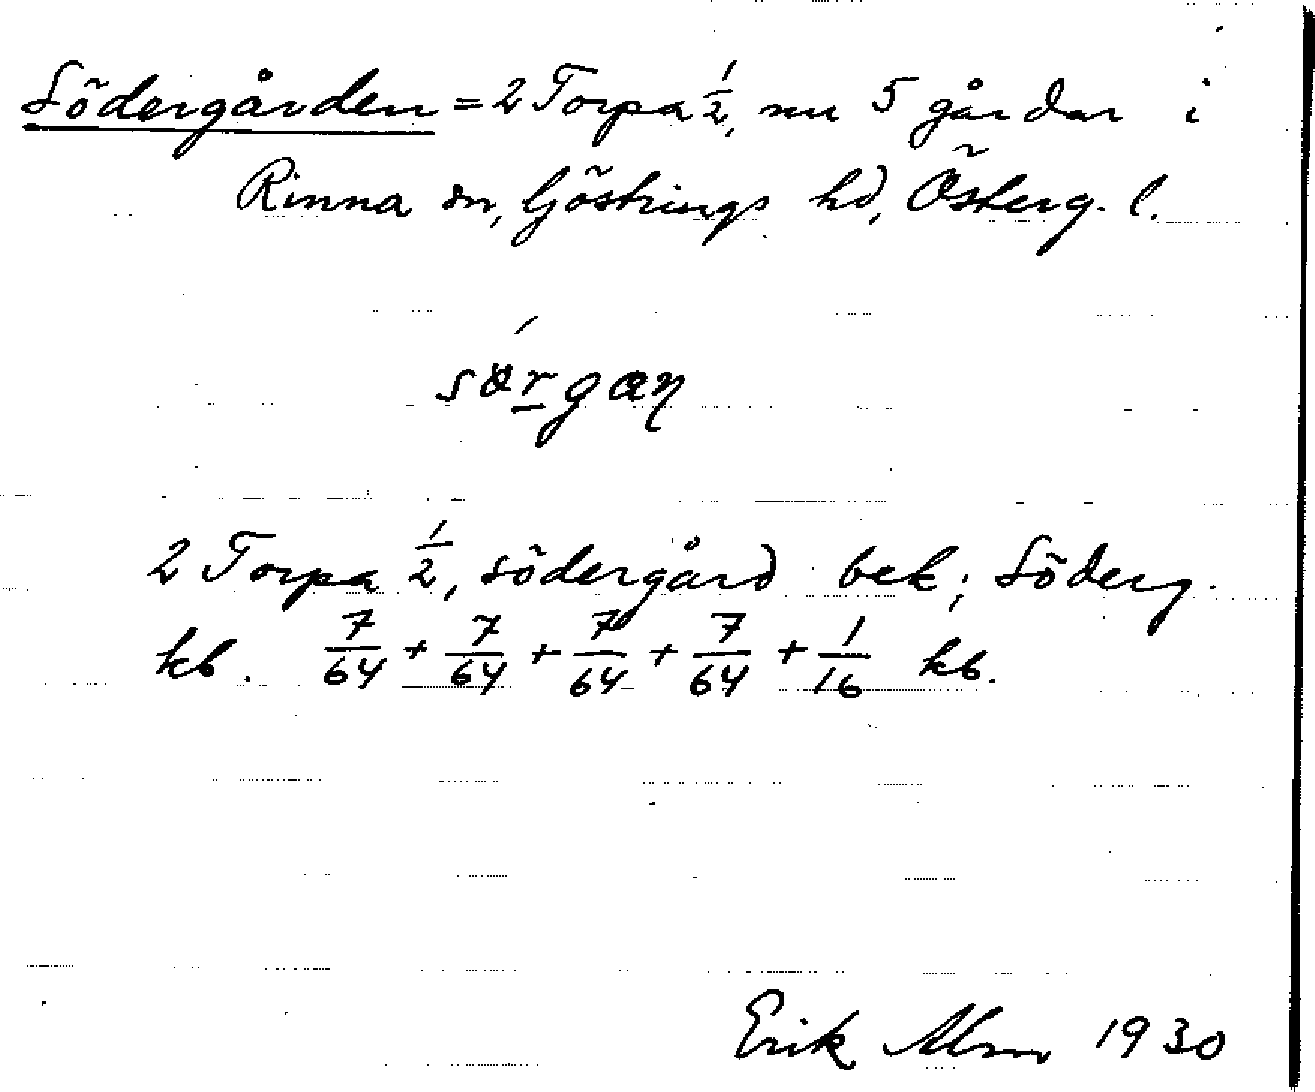 Södergården = 2 Torpa 1/2, nu 5 gårdar i
Rinna sn, Göstrings hd, Österg. l.
2 Torpa 1/2, södergård bek; Söderg.
kb. 7/64 + 7/64 + 7/64 + 7/64 + 1/16 kb.
Erik Alm 1930